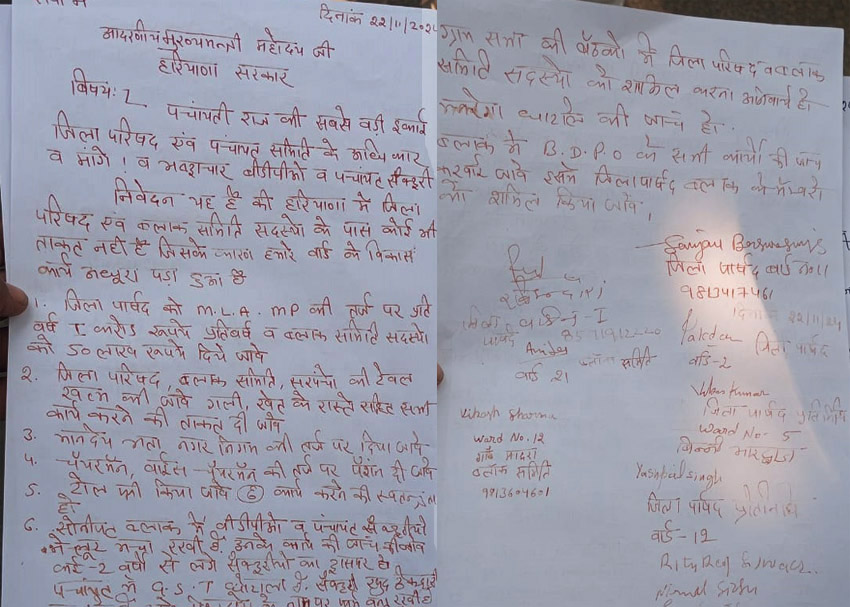 दिनांक 22/11/2024
आदरणीय मुख्यमन्त्री महोदय जी
हरियाणा सरकार
विषय:-
पंचायती राज की सबसे बड़ी इकाई
जिला परिषद एवं पंचायत समिति के अधिकार
व मांगे। व भ्रष्टाचार बीडीपीओ व पंचायत सैक्ट्री
निवेदन यह है की हरियाणा में जिला
परिषद एवं ब्लाक समिति सदस्यो के पास कोई भी
ताकत नही है जिसके कारण हमारे वार्ड के विकास
कार्य अधूरा पड़ा हुआ है
1. जिला पार्षद को M.L.A. MP की तर्ज पर प्रति
वर्ष 1 करोड़ रूपये प्रतिवर्ष व ब्लाक समिति सदस्यो
को 50 लाख रूपये दिये जावे
2. जिला परिषद, ब्लाक समिति, सरपंचो की टेबल
खत्म की जावे गली, खेत के रास्ते सहित सभी
कार्य करने की ताकत दी जावे
3. मानदेय भत्ता नगर निगम की तर्ज पर दिया जावे
4. चेयरमैन, वाईस-चेयरमैन की तर्ज पर पेंशन दी जावे
5. टोल फ्री किया जावे कार्य करने की स्वतन्त्रता
हो
6. सोनीपत ब्लाक में बीडीपीओ व पंचायत
ने लूट मचा रखी है, उनके कार्य की जांच की जावे
2 वर्षो से लगे सैक्ट्रीयो का ट्रांसफर हो
पंचायत में G.S.T घोटाला है.
ग्राम सभा की बैठको में जिला परिषद व ब्लाक
समिति सदस्यो को शामिल करना अनिवार्य हो
मनरेगा घोटाले की जांच हो.
ब्लाक में B.D.P.O के सभी कार्यो की जांच
करवाई जावे इसमे जिला पार्षद ब्लाक के मेम्बरो
को शामिल किया जावे।
Sanjay
जिला पार्षद वार्ड नं 11
9813417461
जिला वार्ड नं-1
पार्षद
दिनांक 22/11/24
जिला पार्षद
वार्ड-2
ब्लाक समिति
वार्ड 21
Vikas Kumar
जिला पार्षद प्रतिनिधि
Ward No. 5
Vikash Sharma
Ward No. 12
गाँव
ब्लाक समिति
9813604601
Yashpal singh
जिला पार्षद प्रतिनिधि
वार्ड-12